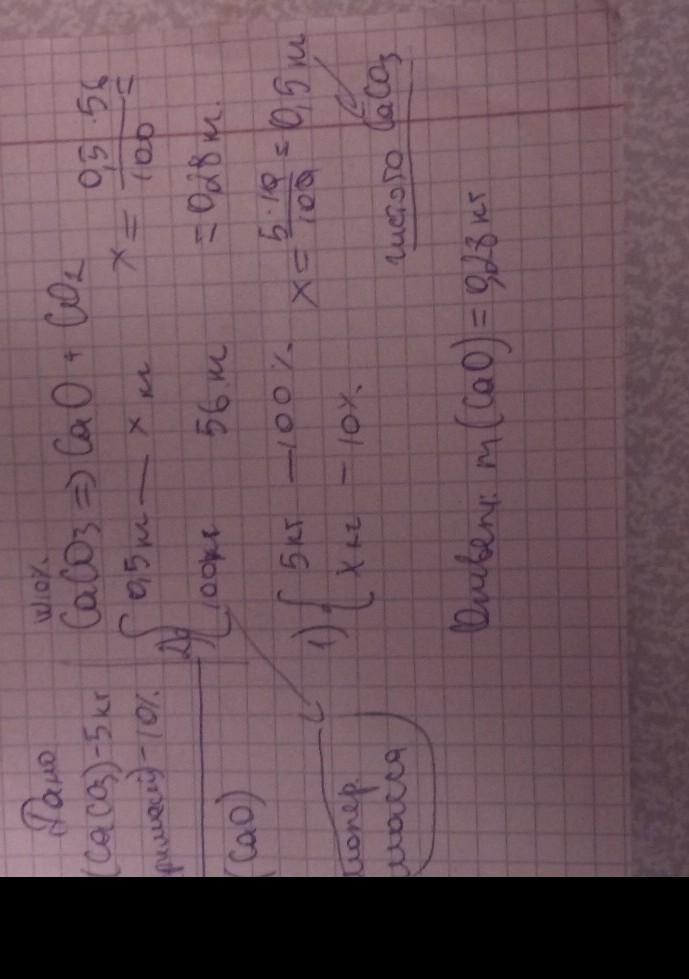 Дано
(CaCO3)-5кг
римесь)-10%
(CaO)
молер.
масса
w10%
CaCO3 => CaO + CO2
2) { 0,5 кг — x кг
100кг 56 кг
x = 0,5 · 56 / 100 =
= 0,28 кг.
1) { 5 кг — 100%
x кг — 10%.
x = 5 · 10 / 100 = 0,5 кг
чистого CaCO3
Ответ: m(CaO) = 0,28 кг